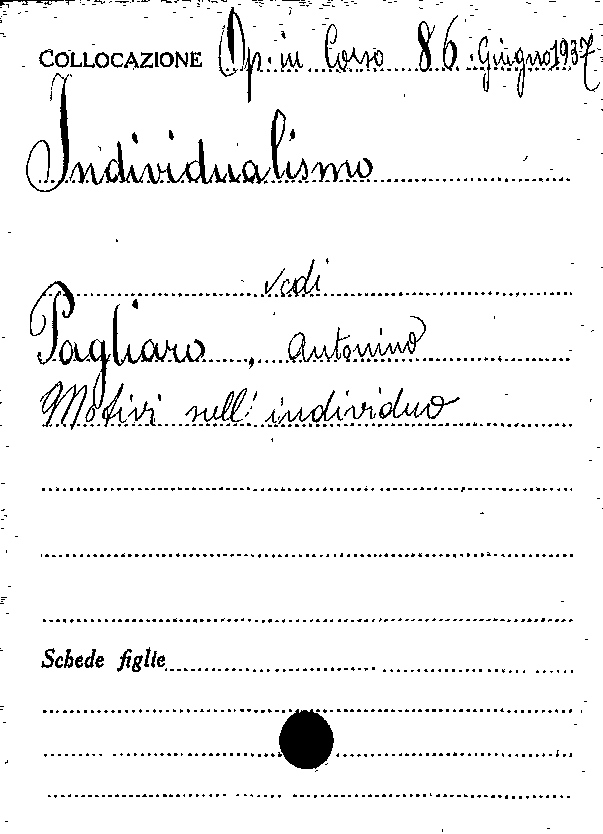 COLLOCAZIONE Op. in Corso 86. Giugno 1937
Individualismo
vedi
Pagliaro, Antonino
Motivi sull'individuo
Schede figlie